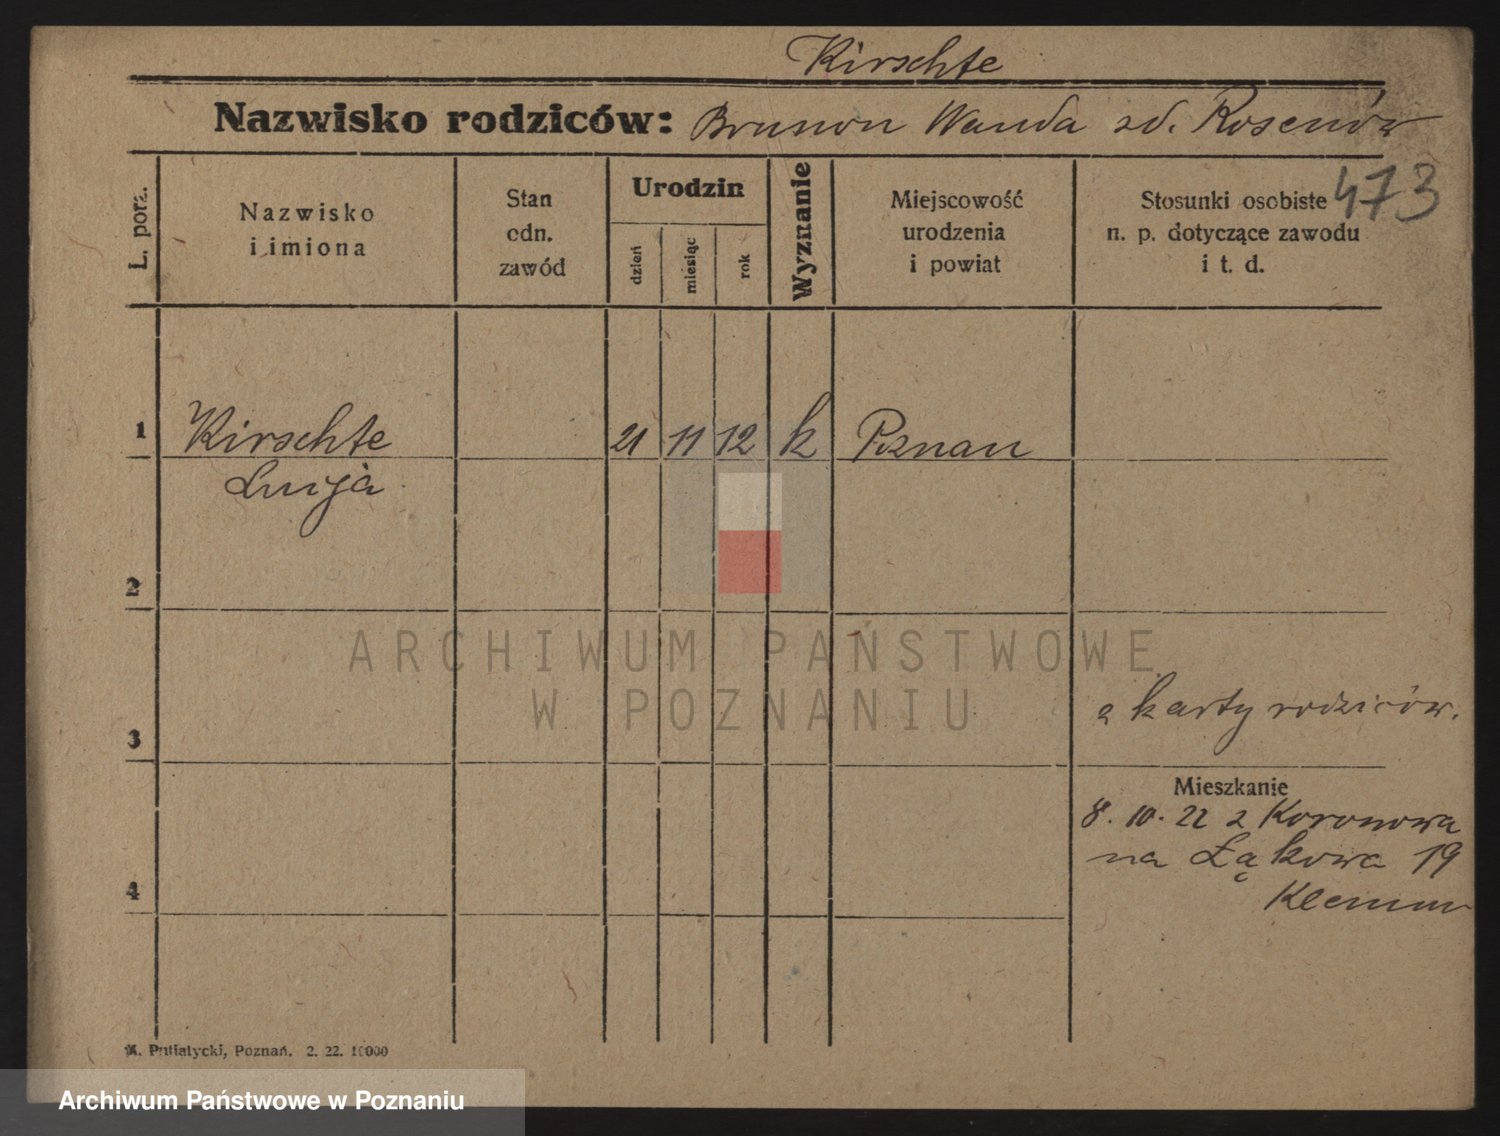 Kirschte
Nazwisko rodziców: Brunon Wanda zd. Rosenów
473
L. porz.
Nazwisko
i imiona
Stan
odn.
zawód
Urodzin
dzień
miesiąc
rok
Wyznanie
Miejscowość
urodzenia
i powiat
Stosunki osobiste
n. p. dotyczące zawodu
i t. d.
1
Kirschte
21 11 12 k Poznan
Luija
2
ARCHIWUM PAŃSTWOWE
W POZNANIU
z karty rodziców.
3
Mieszkanie
8. 10. 22 z Koronowa
na Łąkowa 19
4
K. Putiatycki, Poznań. 2. 22. 10000
Archiwum Państwowe w Poznaniu